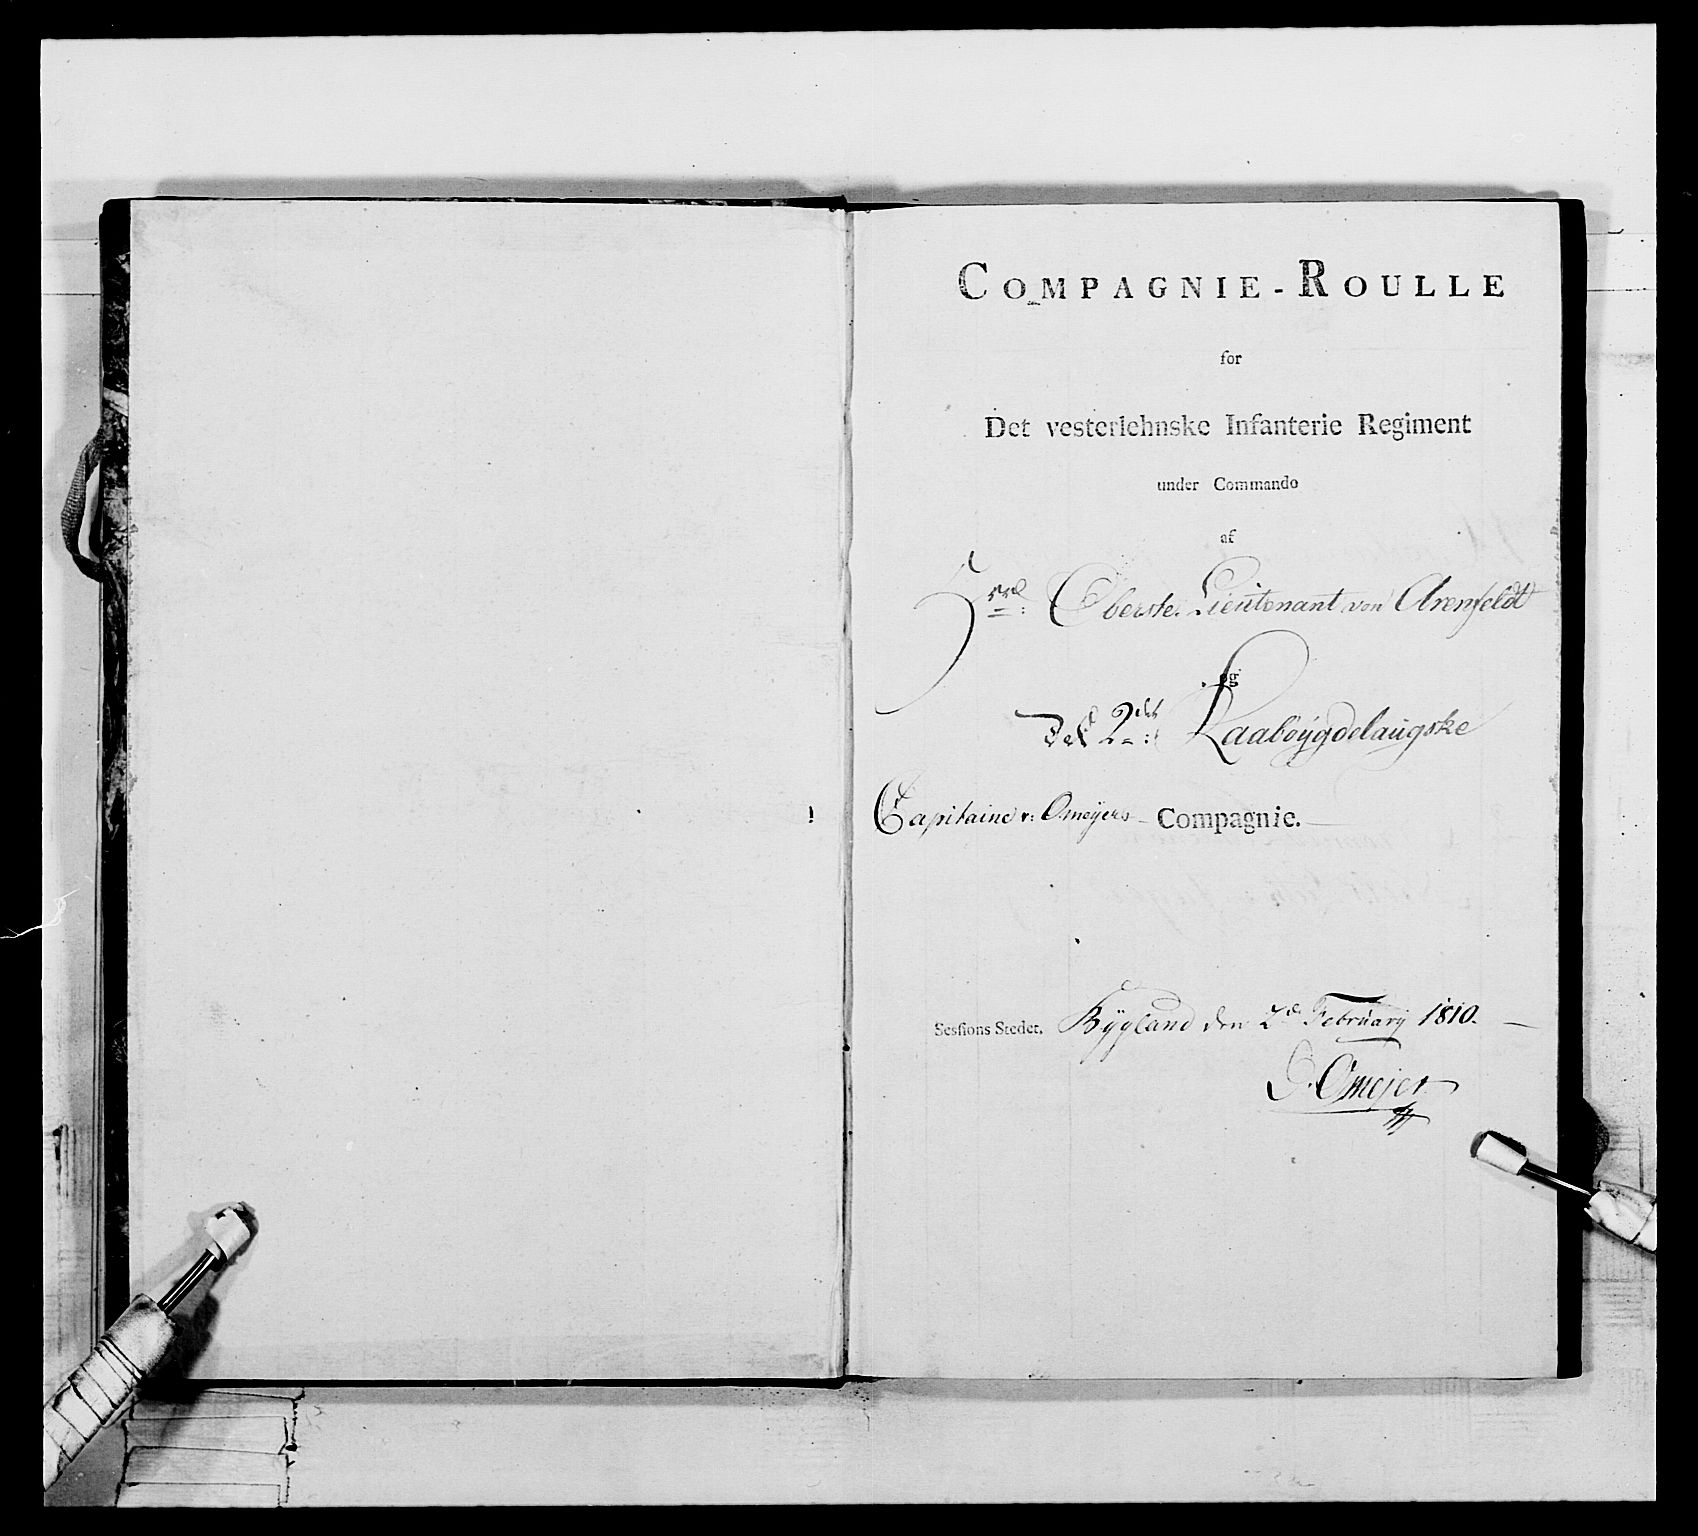 COMPAGNIE-ROULLE
for
Det vesterlehnske Infanterie Regiment
under Commando
af
Hrr: Oberste Lieutenant von Arenfeldt
og
Det 2det Raabÿgdelaugske
Capitaine v: Omeÿers Compagnie.
Sessions Stedet, Bÿgland den 2d Februarÿ 1810.
Omejer